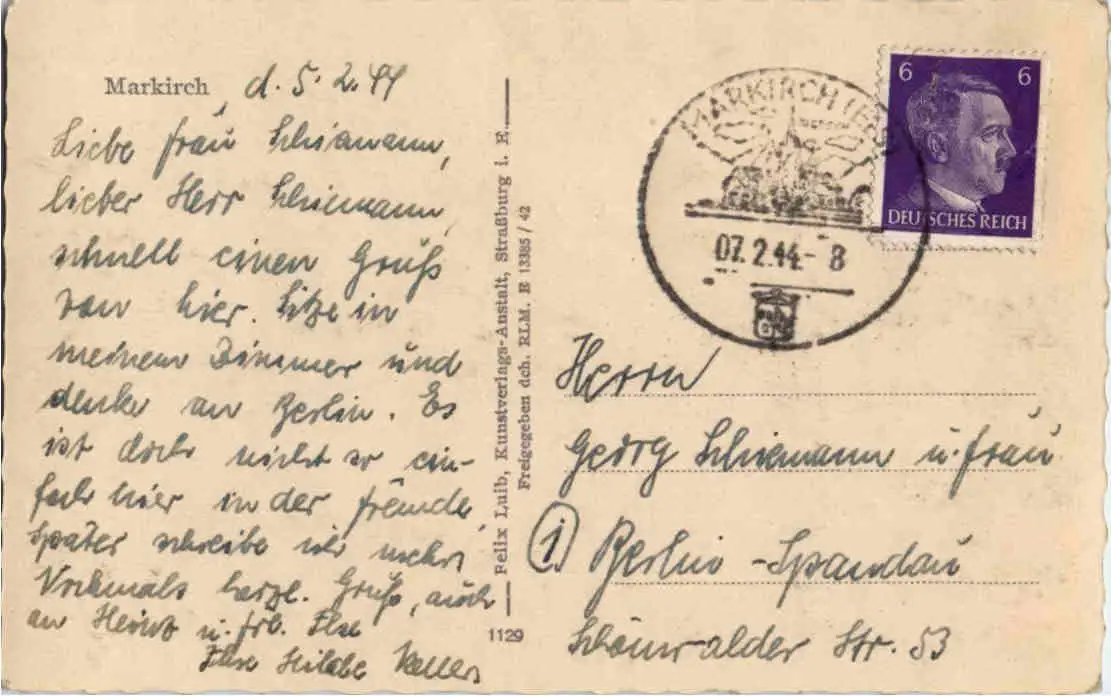 Markirch, d. 5.2.44
Liebe Frau Schiemann,
lieber Herr Schiemann,
schnell einen Gruß
von hier. Sitze in
meinem Zimmer und
denke an Berlin. Es
ist doch nicht so ein-
fach hier in der Fremde,
später schreibe ich mehr.
Nochmals herzl. Gruß, auch
an Heinz u. Frl. Ilse
Ihre
Felix Luib, Kunstverlags-Anstalt, Straßburg i. E.
Freigegeben dch. RLM. E 13385 / 42
1129
MARKIRCH (ELS)
07.2.44.- 8
6 6
DEUTSCHES REICH
Herrn
Georg Schiemann u. Frau
① Berlin-Spandau
Schönwalder Str. 53